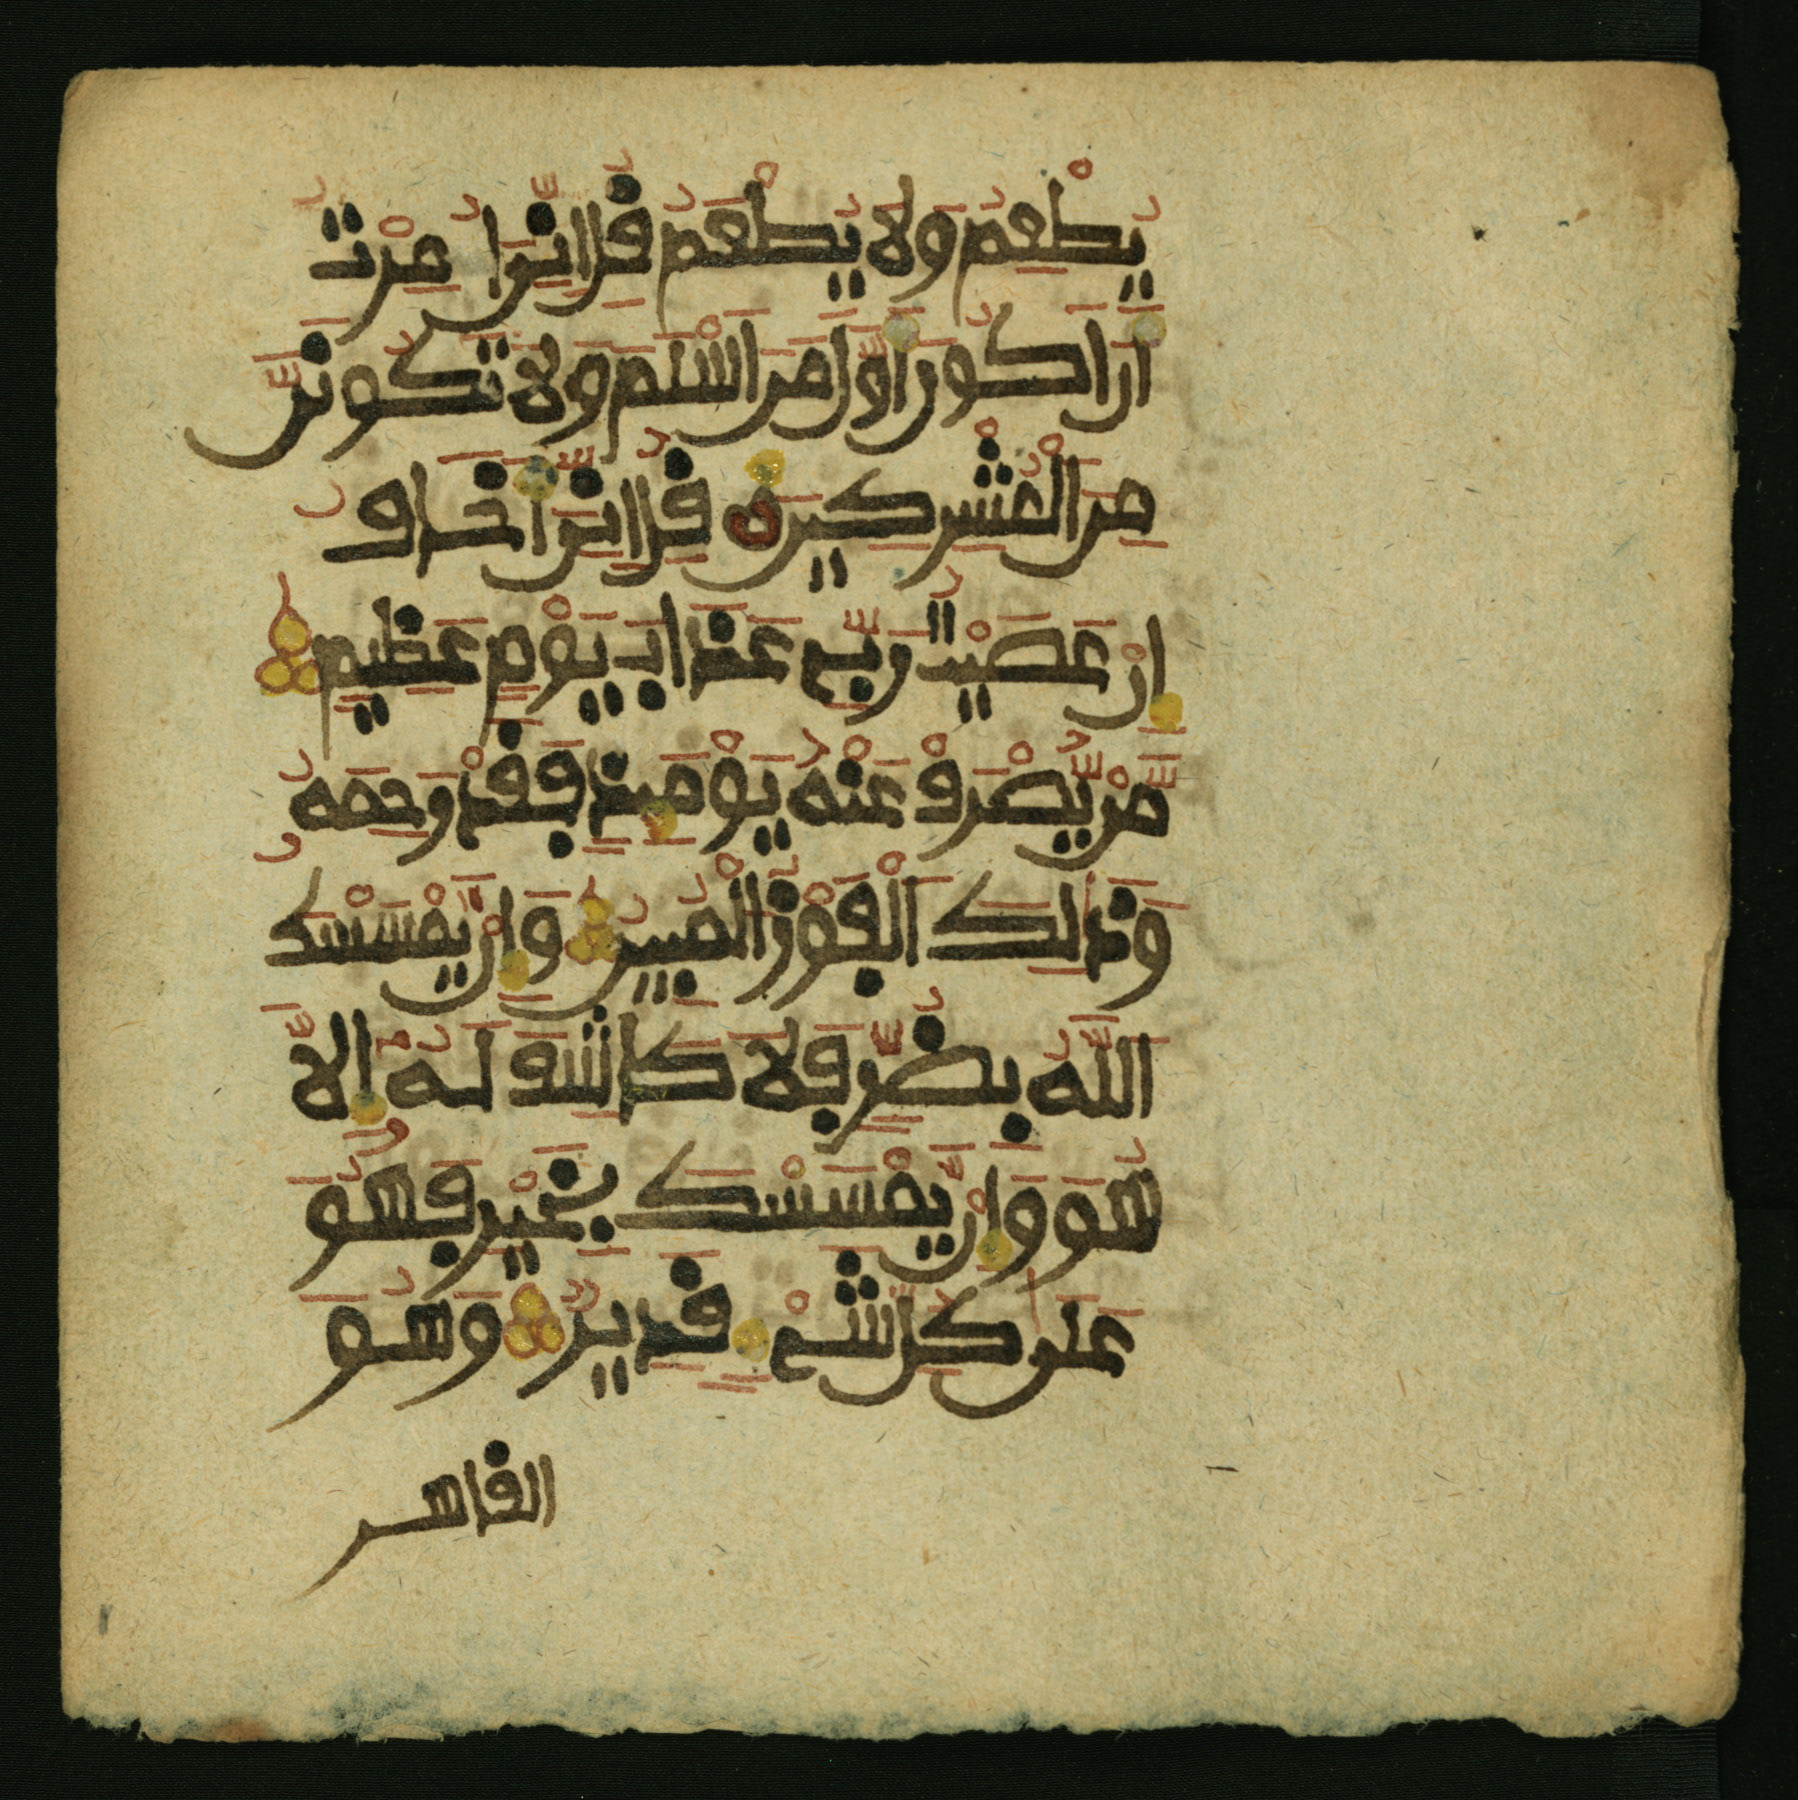 يُطْعِمُ وَلَا يُطْعَمُ قُلِ انِّيَ أُمِرْتُ
أَنَ اَكُونَ أَوَّلَ مَنَ اَسْلَمَ وَلَا تَكُونَنَّ
مِنَ الْمُشْرِكِينَ قُلِ انِّيَ أَخَافُ
إِنْ عَصَيْتُ رَبِّي عَذَابَ يَوْمٍ عَظِيمٍ
مَّنْ يُّصْرَفْ عَنْهُ يَوْمَئِذٍ فَقَدْ رَحِمَهُ
وَذَٰلِكَ الْفَوْزُ الْمُبِينُ وَإِنْ يَّمْسَسْكَ
اللَّهُ بِضُرٍّ فَلَا كَاشِفَ لَهُ إِلَّا
هُوَ وَإِنْ يَّمْسَسْكَ بِخَيْرٍ فَهُوَ
عَلَىٰ كُلِّ شَيْءٍ قَدِيرٌ وَهُوَ
القاهر